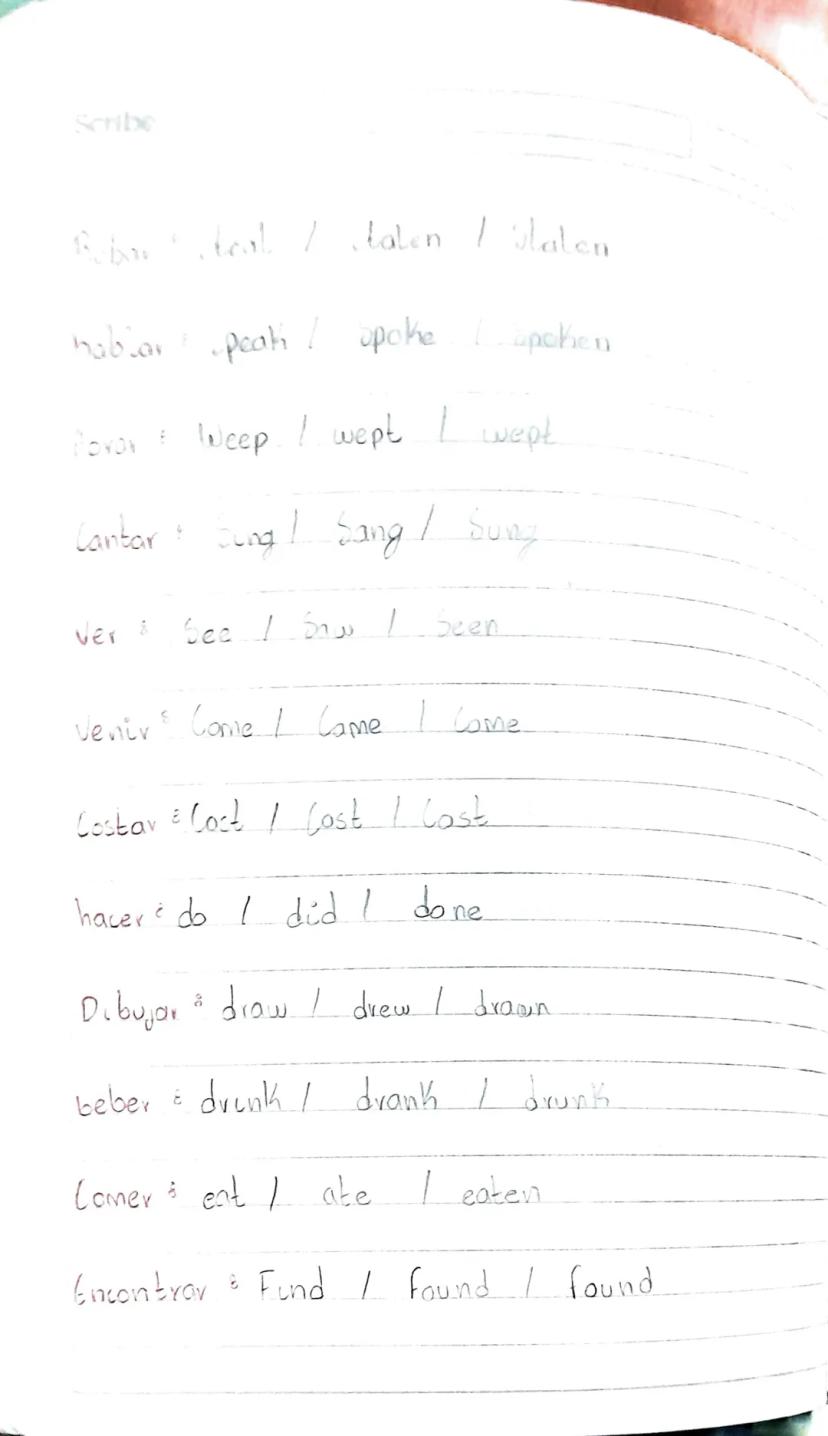 Scribe
/ stolen
hablar : speak / spoke / spoken
: Weep / wept / wept
Cantar : Sing / Sang / Sung
Ver : See / Saw / Seen
Venir : Come / Came / Come
Costar : Cost / Cost / Cost
hacer : do / did / done
Dibujar : draw / drew / drawn
beber : drink / drank / drunk
Comer : eat / ate / eaten
Encontrar : Find / found / found